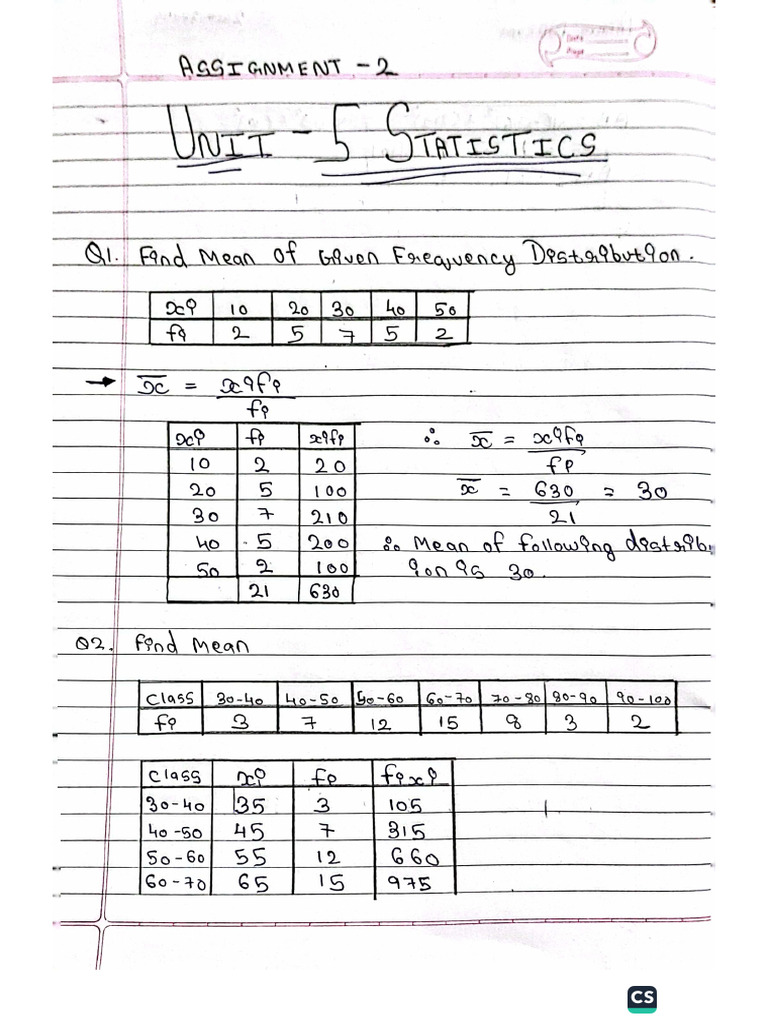 Date
Page
ASSIGNMENT - 2
UNIT - 5 STATISTICS
Q1. Find Mean of Given Frequency Distribution.
xi 10 20 30 40 50
fi 2 5 7 5 2
→ x̄ = xifi / fi
xi fi xifi
10 2 20
20 5 100
30 7 210
40 5 200
50 2 100
21 630
∴ x̄ = xifi / fi
x̄ = 630 / 21 = 30
∴ Mean of following distrib
ion is 30.
Q2. Find Mean
Class 30-40 40-50 50-60 60-70 70-80 80-90 90-100
fi 3 7 12 15 8 3 2
Class xi fi fixi
30-40 35 3 105
40-50 45 7 315
50-60 55 12 660
60-70 65 15 975
CS